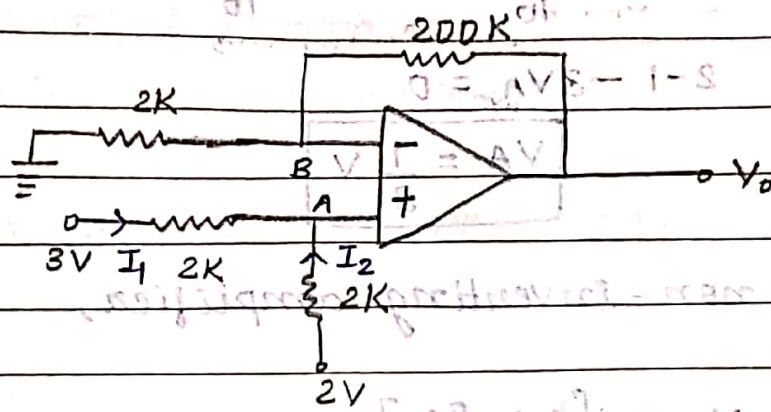 200K
2K
B
-
V₀
A
+
3V I₁ 2K I₂
2K
2V